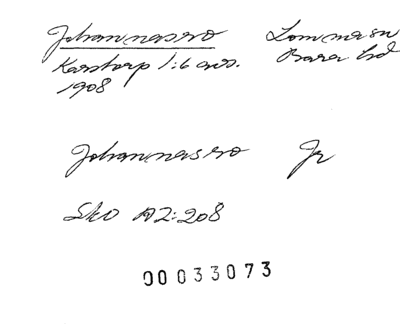 Johannasro Lomma sn
Karstorp 1:6 avs. Bara hd
1908
Johannasro Jr
Sko A2:208
00033073